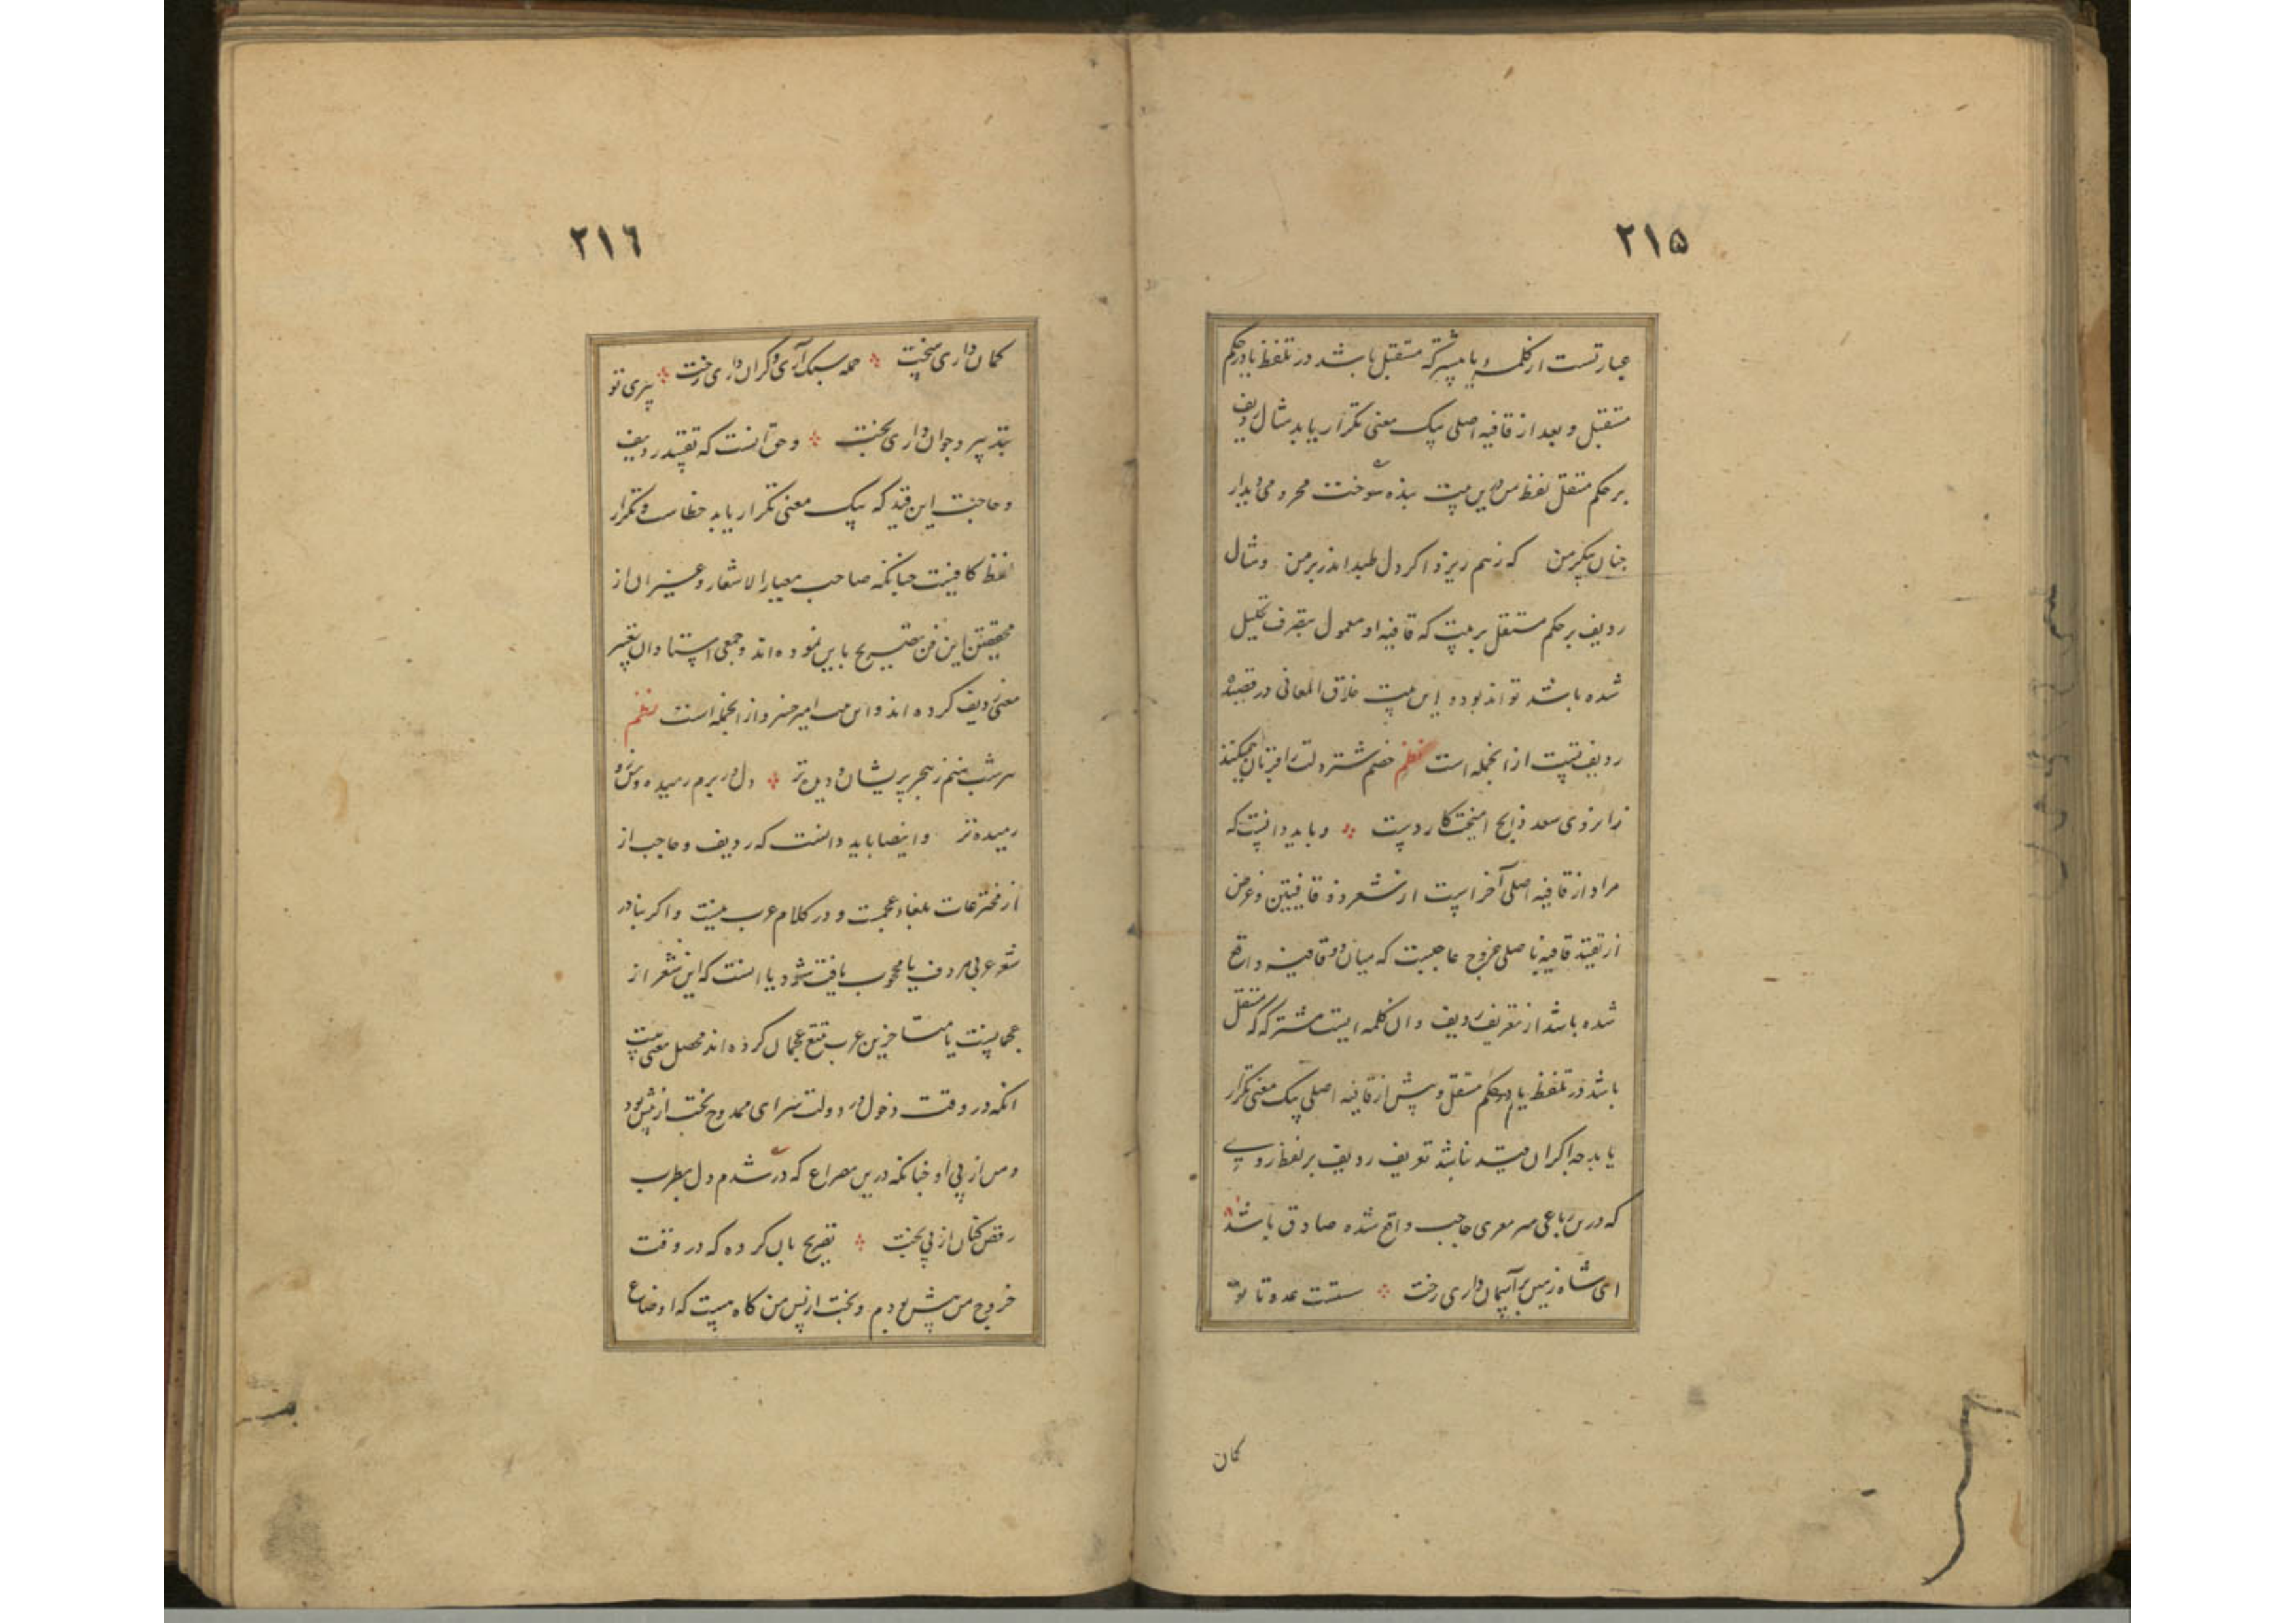 ٢١٥
عبارتست از کلمه یا بیشتر که مستقل باشد در تلفظ یا در حکم
مستقل و بعد از قافیه اصلی بیک معنی تکرار یابد مثال ردیف
بر حکم مستقل لفظ من درین بیت بنده سوخت محرومی دیدار
چنان پیکر من که ز هم ریزد اگر دل طپد اندر بر من و مثال
ردیف بر حکم مستقل بر بیت که قافیه او معمول بتصرف تحلیل
شده باشد تواند بود و این بیت خلاق المعانی در قصیده
ردیف از انجمله است نظم خصم شتر دلت را قربان میکنند
زانروی سعد ذابح کارد و باید دانست که
مراد از قافیه اصلی آخر است از شعر ذو قافیتین و غرض
از تقیید قافیه باصلی خروج حاجبست که میان دو قافیه واقع
شده باشد از تعریف ردیف و ان کلمه ایست مشترکه که مستقل
باشد در تلفظ یا در حکم مستقل و پیش از قافیه اصلی بیک معنی تکرار
یابد چه اگر ان قید نباشد تعریف ردیف بر لفظ
که درین رباعی معزی حاجب واقع شده صادق باشد
ای شاه زمین بر آسمان داری تخت سست عدو تا تو
کمان
٢١٦
کمان داری سخت حمله سبک آری و گران داری رخت پیری تو
بتدبیر و جوان داری بخت و حق انست که تقیید ردیف
و حاجب باین قید که بیک معنی تکرار یابد خطاست و تکرار
لفظ کافیست چنانکه صاحب معیار الاشعار و غیر ان از
محققین این فن تصریح باین نموده اند و جمعی استادان تغییر
معنی ردیف کرده اند و این امیر خسرو از انجمله است نظم
هر شب منم ز هجر پریشان و دل در برم رمیده و
رمیده تر و ایضا باید دانست که ردیف و حاجب از
از مخترعات بلغاء عجمست و در کلام عرب نیست و اگر بنادر
شعر عربی مردف یا محجوب یافت شود یا انست که این شعر از
عجمانیست یا متاخرین عرب تتبع عجمان کرده اند محصل معنی بیت
انکه در وقت دخول در دولت سرای ممدوح بخت از پیش بود
و من از پی او چنانکه درین مصراع که در شدم دل بطرب
رقص کنان از پی بخت تصریح بان کرده که در وقت
خروج من پیش بودم و بخت از پس من گاه هست که اوضاع